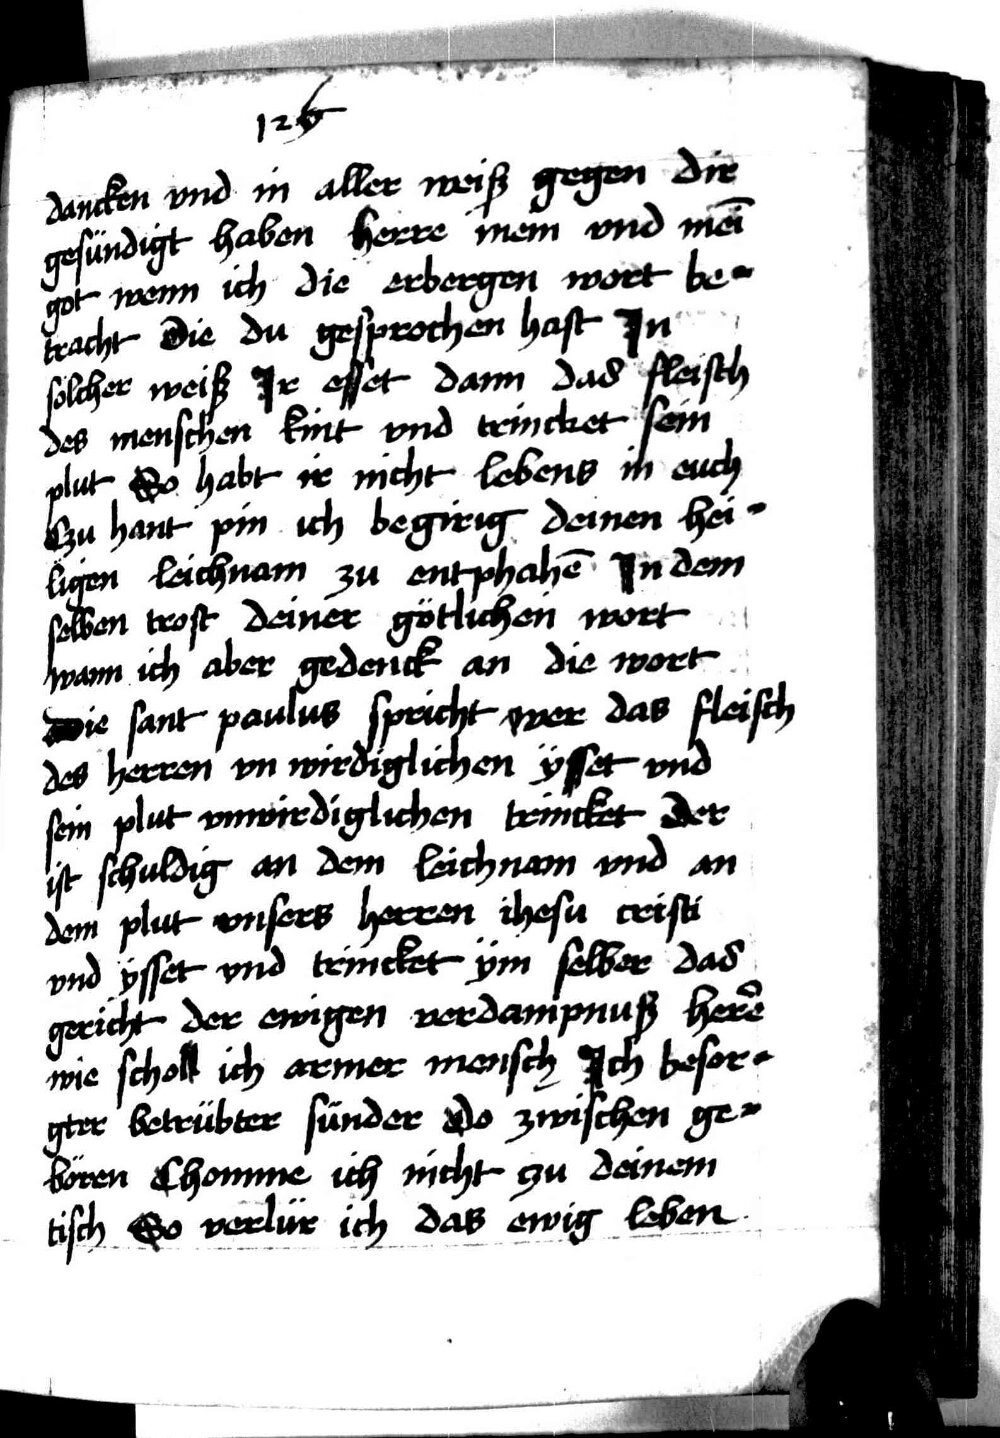 126
dancken vnd in aller weiß gegen dir
gesündigt haben herre mein vnd mei̅
got wenn ich die erbergen wort be-
tracht Die du gesprochen hast In
solcher weiß Ir esset dann das fleisch
des menschen kint vnd trincket sein
plut So habt ir nicht lebens in euch
Czu hant pin ich begirig deinen hei-
ligen leichnam zu entphahe̅ In dem
selben trost deiner götlichen wort
wann ich aber gedenck an die wort
Die sant paulus spricht wer das fleisch
des herren vn wirdiglichen ÿsset vnd
sein plut vnwirdiglichen trincket Der
ist schuldig an dem leichnam vnd an
dem plut vnsers herren ihesu cristi
vnd ÿsset vnd trincket ÿm selber das
gericht der ewigen verdampnuß here̅
wie scholl ich armer mensch Ich besor-
gter betrübter sünder Do zwischen ge-
bören Chomme ich nicht zu deinem
tisch So verlür ich das ewig leben